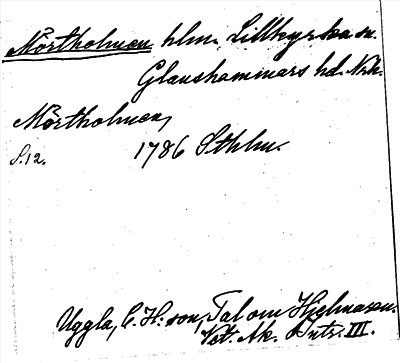 Mörtholmen hlm. Lillkyrka sn.
Glanshammars hd. Nrk.
Mörtholmen,
S. 12. 1786 Sthlm.
Uggla, C. H:son, Tal om Hjelmaren.
Vet. Ak. Intr. III.